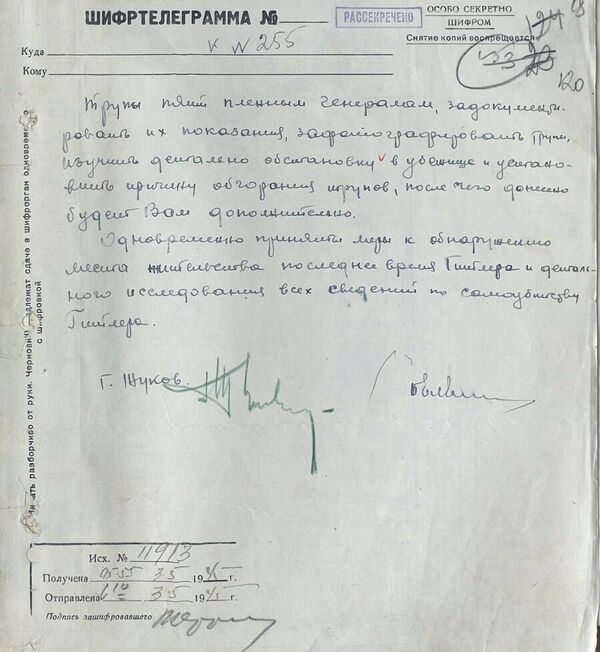 ШИФРТЕЛЕГРАММА №
РАССЕКРЕЧЕНО
ОСОБО СЕКРЕТНО
ШИФРОМ
Снятие копий воспрещается
Куда
к N 255
120
Кому
Трупы этих пленным генералам, задокументи-
ровать их показания, зафотографировать трупы,
изучить детально обстановку в убежище и устано-
вить причину обгорания трупов, после чего донесено
будет Вам дополнительно.
Одновременно приняты меры к обнаружению
места жительства последнее время Гитлера и деталь-
ного исследования всех сведений по самоубийству
Гитлера.
Г. Жуков.
разборчиво от руки.
сдаче в шифрорган одновременно
с шифровкой
Исх. № 11913
Получена 05-55 3.5 1945 г.
Отправлена 6 10 3.5 1945 г.
Подпись зашифровавшего